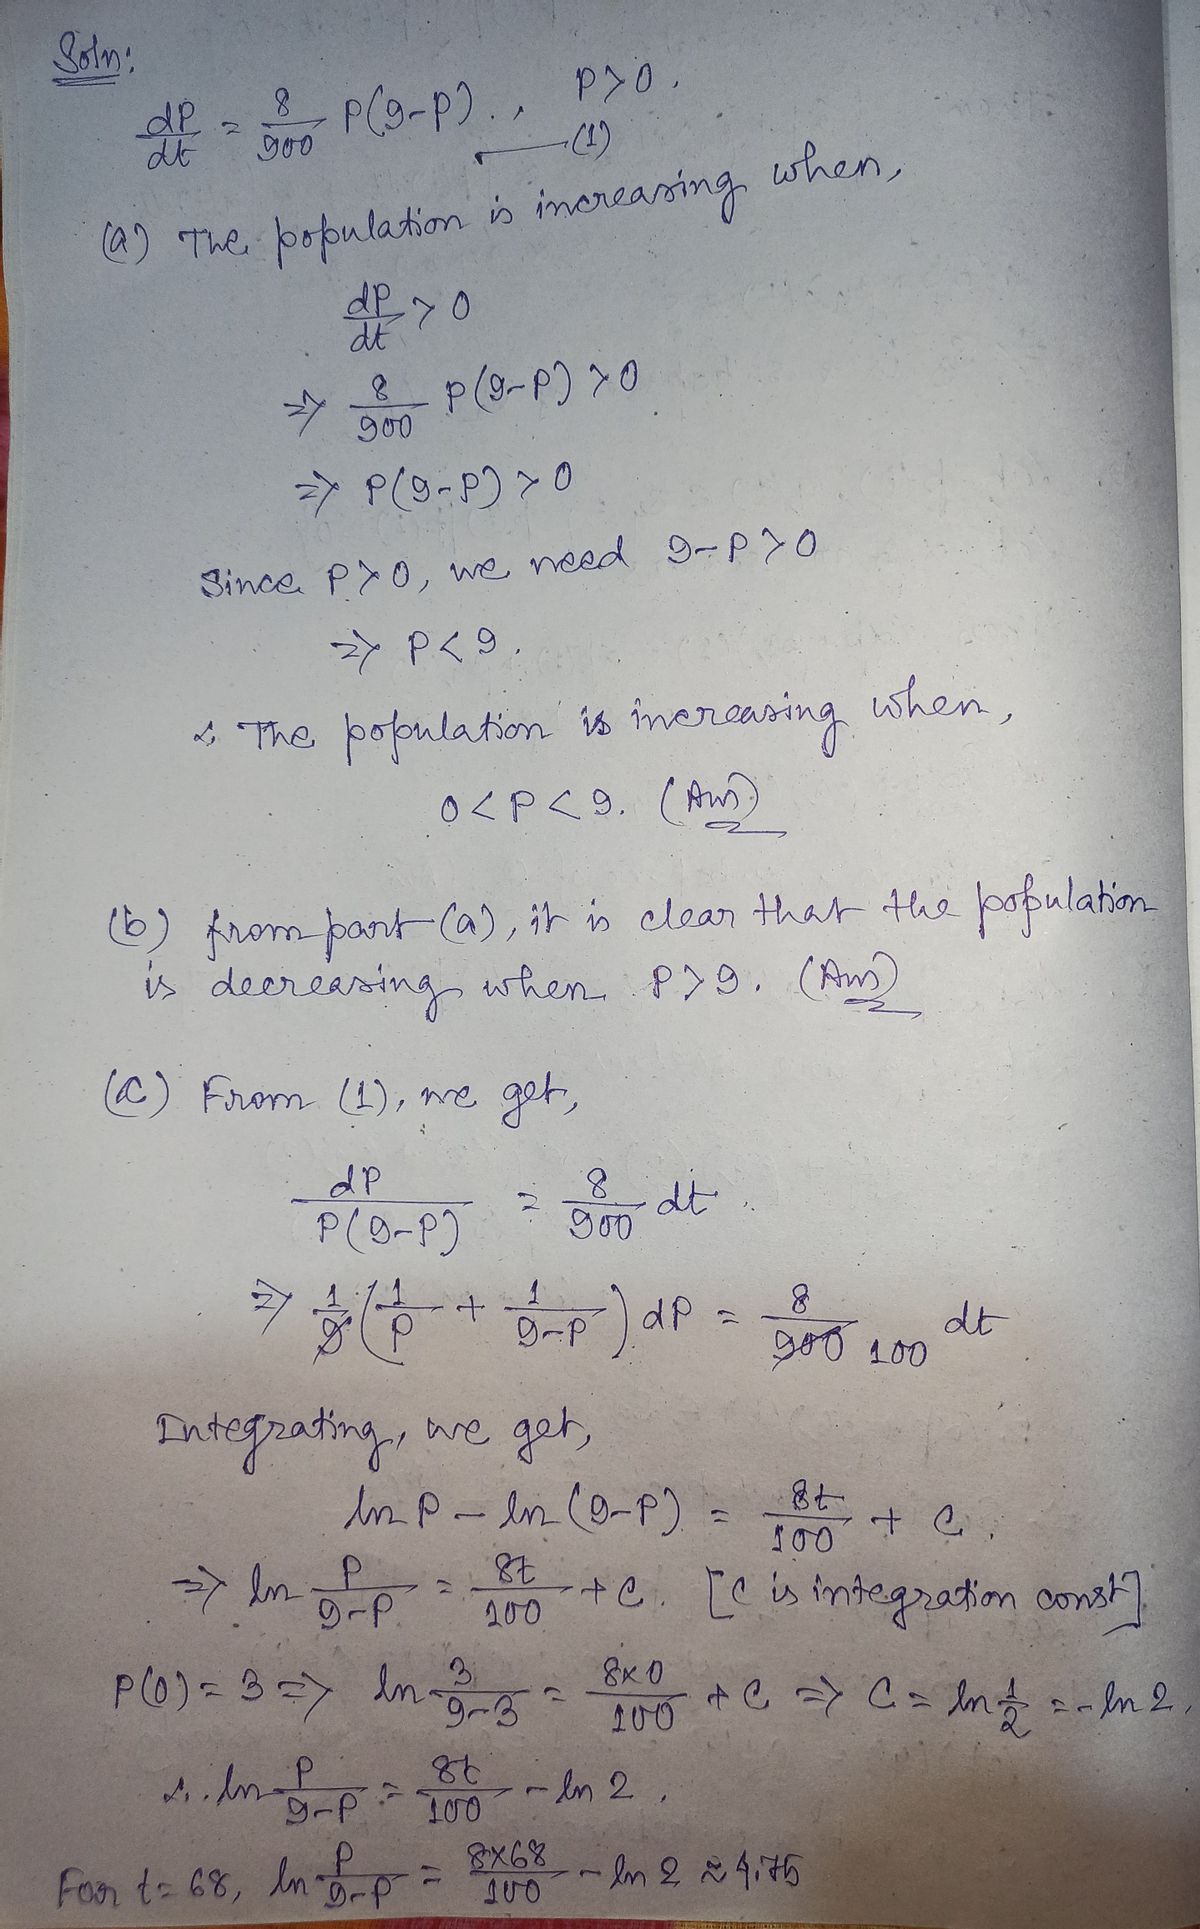 Soln:
dP/dt = 8/900 P(9-P). , P>0.
(1)
(a) The population is increasing when,
dP/dt > 0
⇒ 8/900 P(9-P) > 0
⇒ P(9-P) > 0
Since P>0, we need 9-P>0
⇒ P<9.
∴ The population is increasing when,
0<P<9. (Ans)
(b) from part (a), it is clear that the population
is decreasing when P>9. (Ans)
(c) From (1), we get,
dP/P(9-P) = 8/900 dt.
⇒ 1/9 (1/P + 1/9-P) dP = 8/900 100 dt
Integrating, we get,
ln P - ln (9-P) = 8t/100 + C.
⇒ ln P/9-P = 8t/100 + C. [C is integration const]
P(0) = 3 ⇒ ln 3/9-3 = 8×0/100 + C ⇒ C = ln 1/2 = -ln 2.
∴ ln P/9-P = 8t/100 - ln 2.
For t = 68, ln P/9-P = 8×68/100 - ln 2 ≈ 4.75